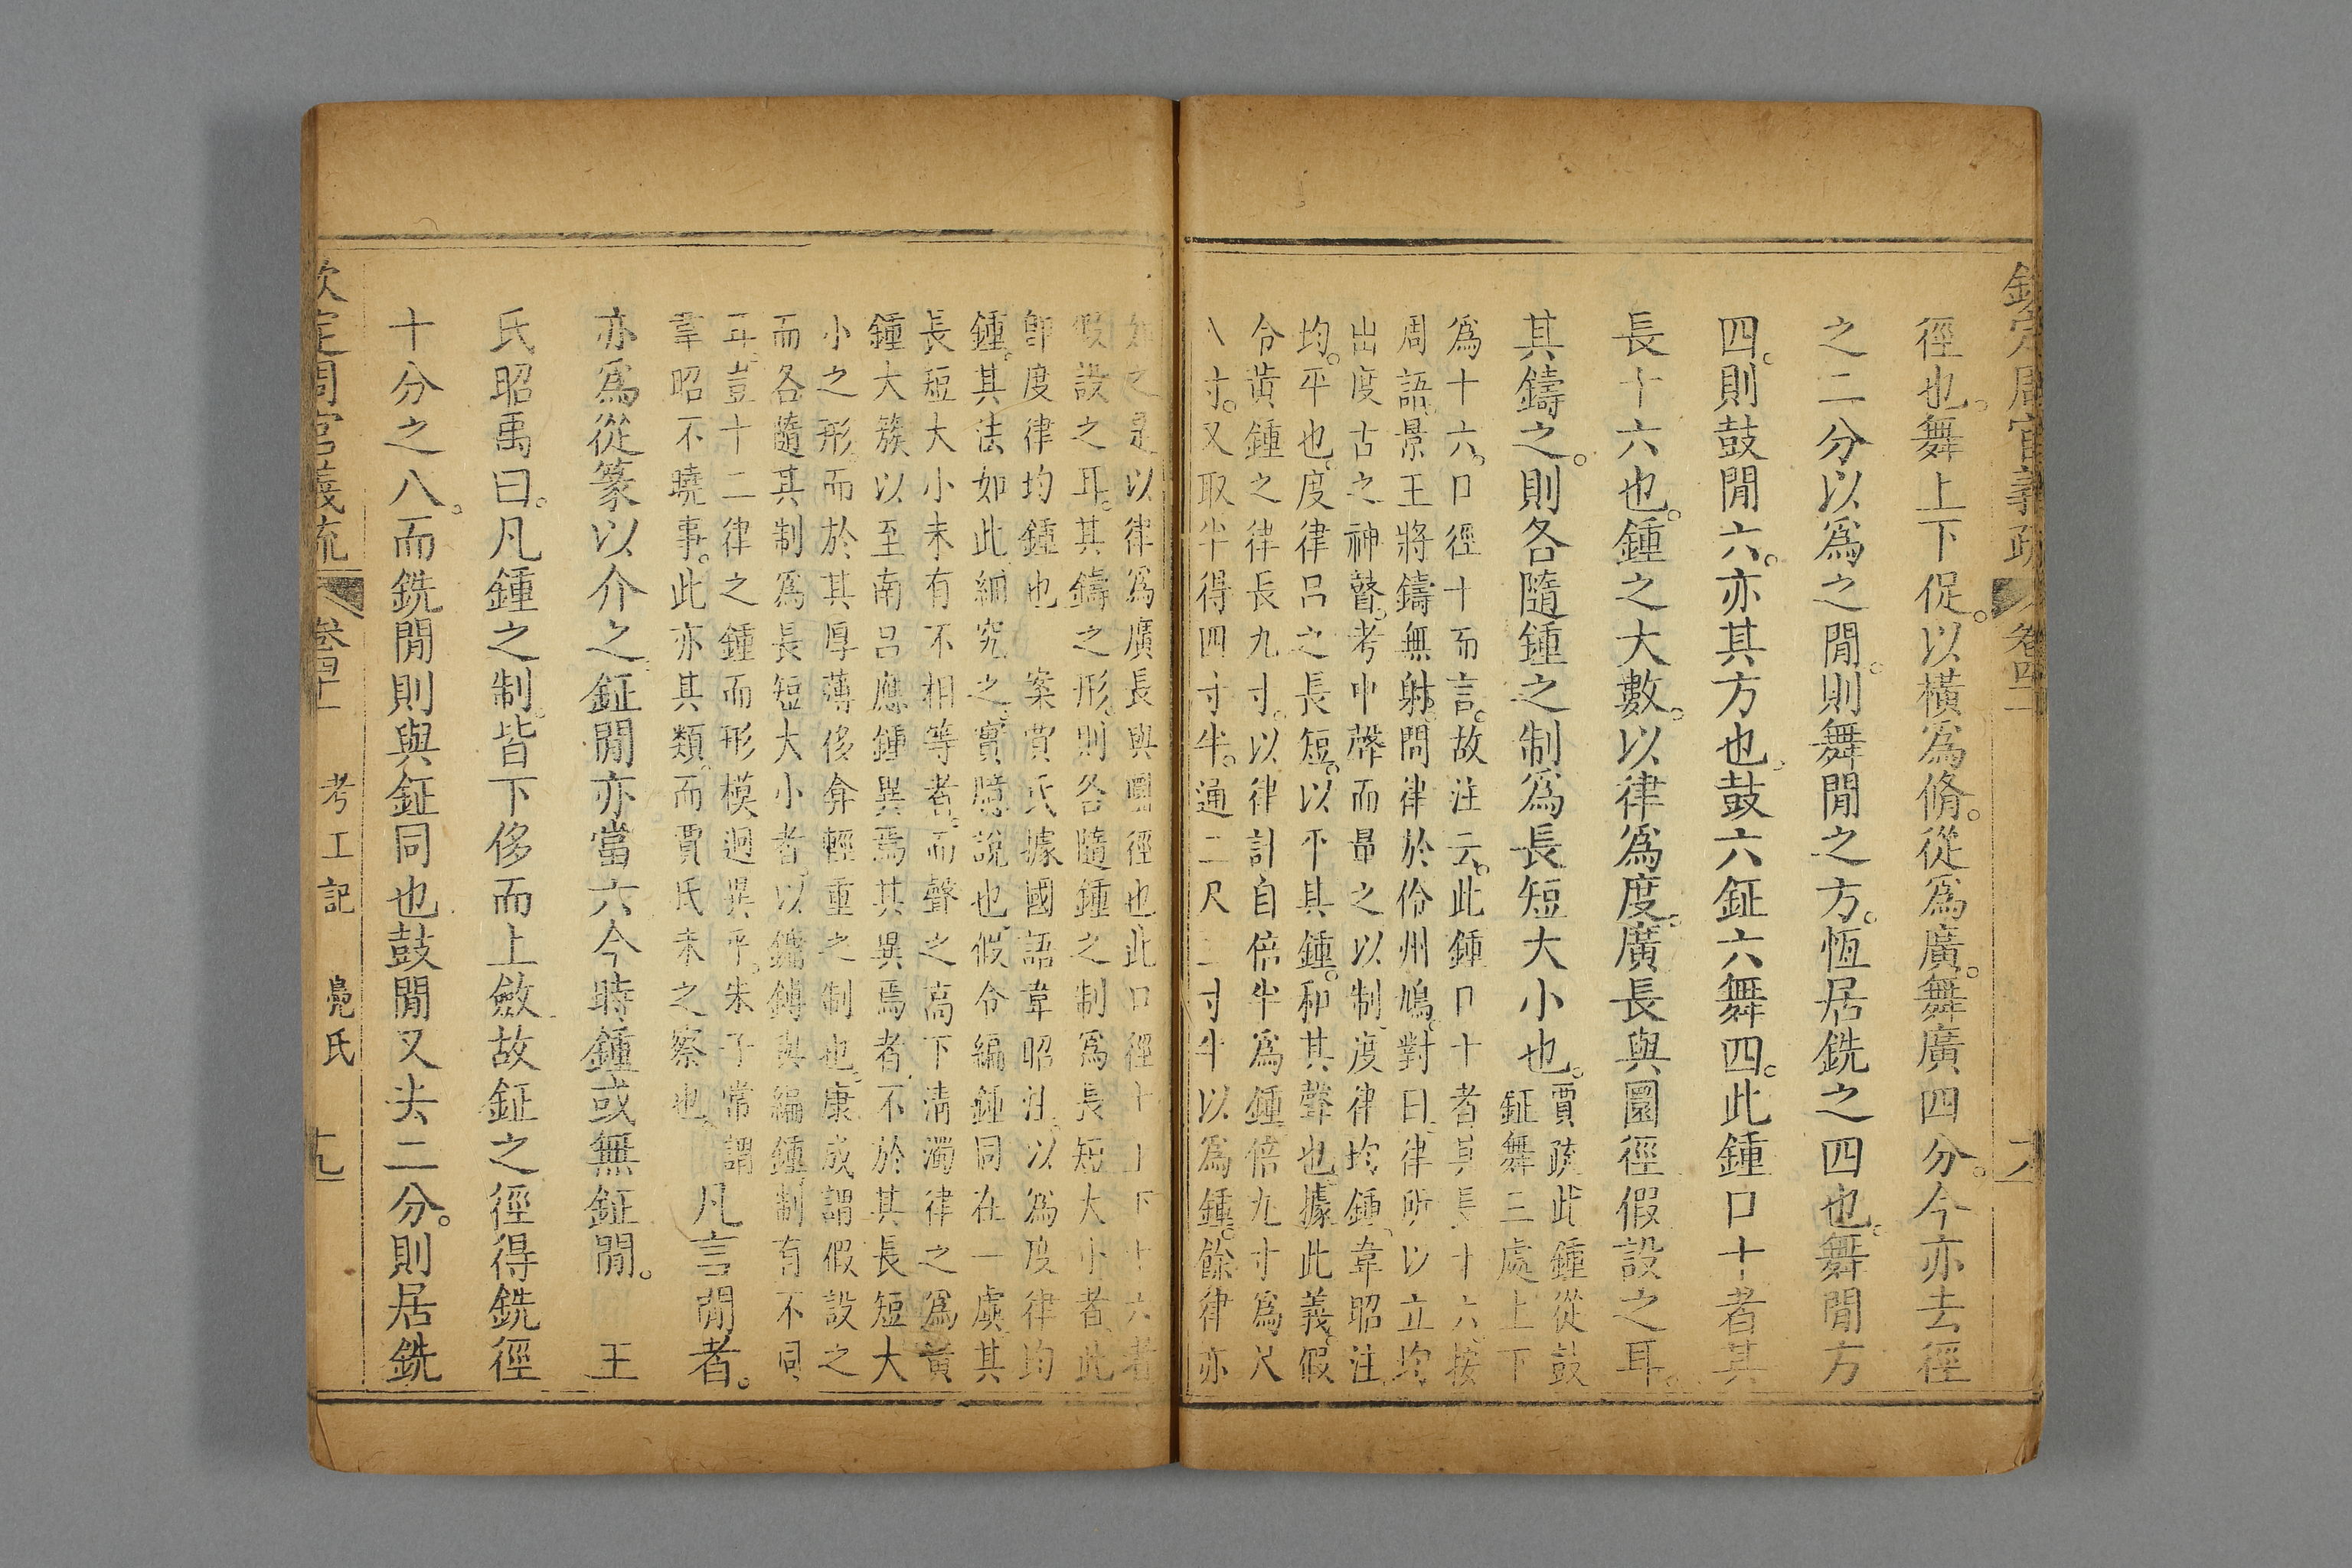 欽定周官義疏 卷四十二
徑也。舞上下促。以橫爲脩。從爲廣。舞廣四分。今亦去徑
之二分以爲之閒。則舞閒之方。恆居銑之四也。舞閒方
四。則鼓閒六。亦其方也。鼓六鉦六舞四。此鍾口十者其
長十六也。鍾之大數。以律爲度。廣長與圜徑假設之耳。
其鑄之。則各隨鍾之制爲長短大小也。
賈疏此鍾從鼓
鉦舞三處上下
爲十六。口徑十而言。故注云。此鍾口十者其長十六。按
周語景王將鑄無射。問律於伶州鳩。對曰。律所以立均
出度古之神瞽。考中聲而量之以制。度律均鍾。韋昭注。
均。平也。度律呂之長短。以平其鍾。和其聲也。據此義。假
令黃鍾之律長九寸。以律計自倍半爲鍾倍九寸爲尺
八寸。又取半得四寸半。通二尺二寸半以爲鍾。餘律亦
如之是以律爲廣長與圜徑也此口徑十上下十六者
假設之耳。其鑄之形。則各隨鍾之制爲長短大小者此
卽度律均鍾也 案賈氏據國語韋昭注。以爲度律均
鍾。其法如此細究之。實臆說也。假令編鍾同在一虡其
長短大小未有不相等者。而聲之高下清濁律之爲黃
鍾大簇以至南呂應鍾異焉其異焉者不於其長短大
小之形。而於其厚薄侈弇輕重之制也。康成謂假設之
而各隨其制爲長短大小者。以鏞鏄與編鍾制有不同
耳。豈十二律之鍾而形模迥異乎。朱子常謂
韋昭不曉事。此亦其類。而賈氏未之察也
凡言閒者。
亦爲從篆以介之。鉦閒亦當六今時鍾或無鉦閒。 王
氏昭禹曰。凡鍾之制。皆下侈而上斂故鉦之徑得銑徑
十分之八。而銑閒則與鉦同也鼓閒又去二分。則居銑
欽定周官義疏 卷四十二 考工記 鳧氏 十九